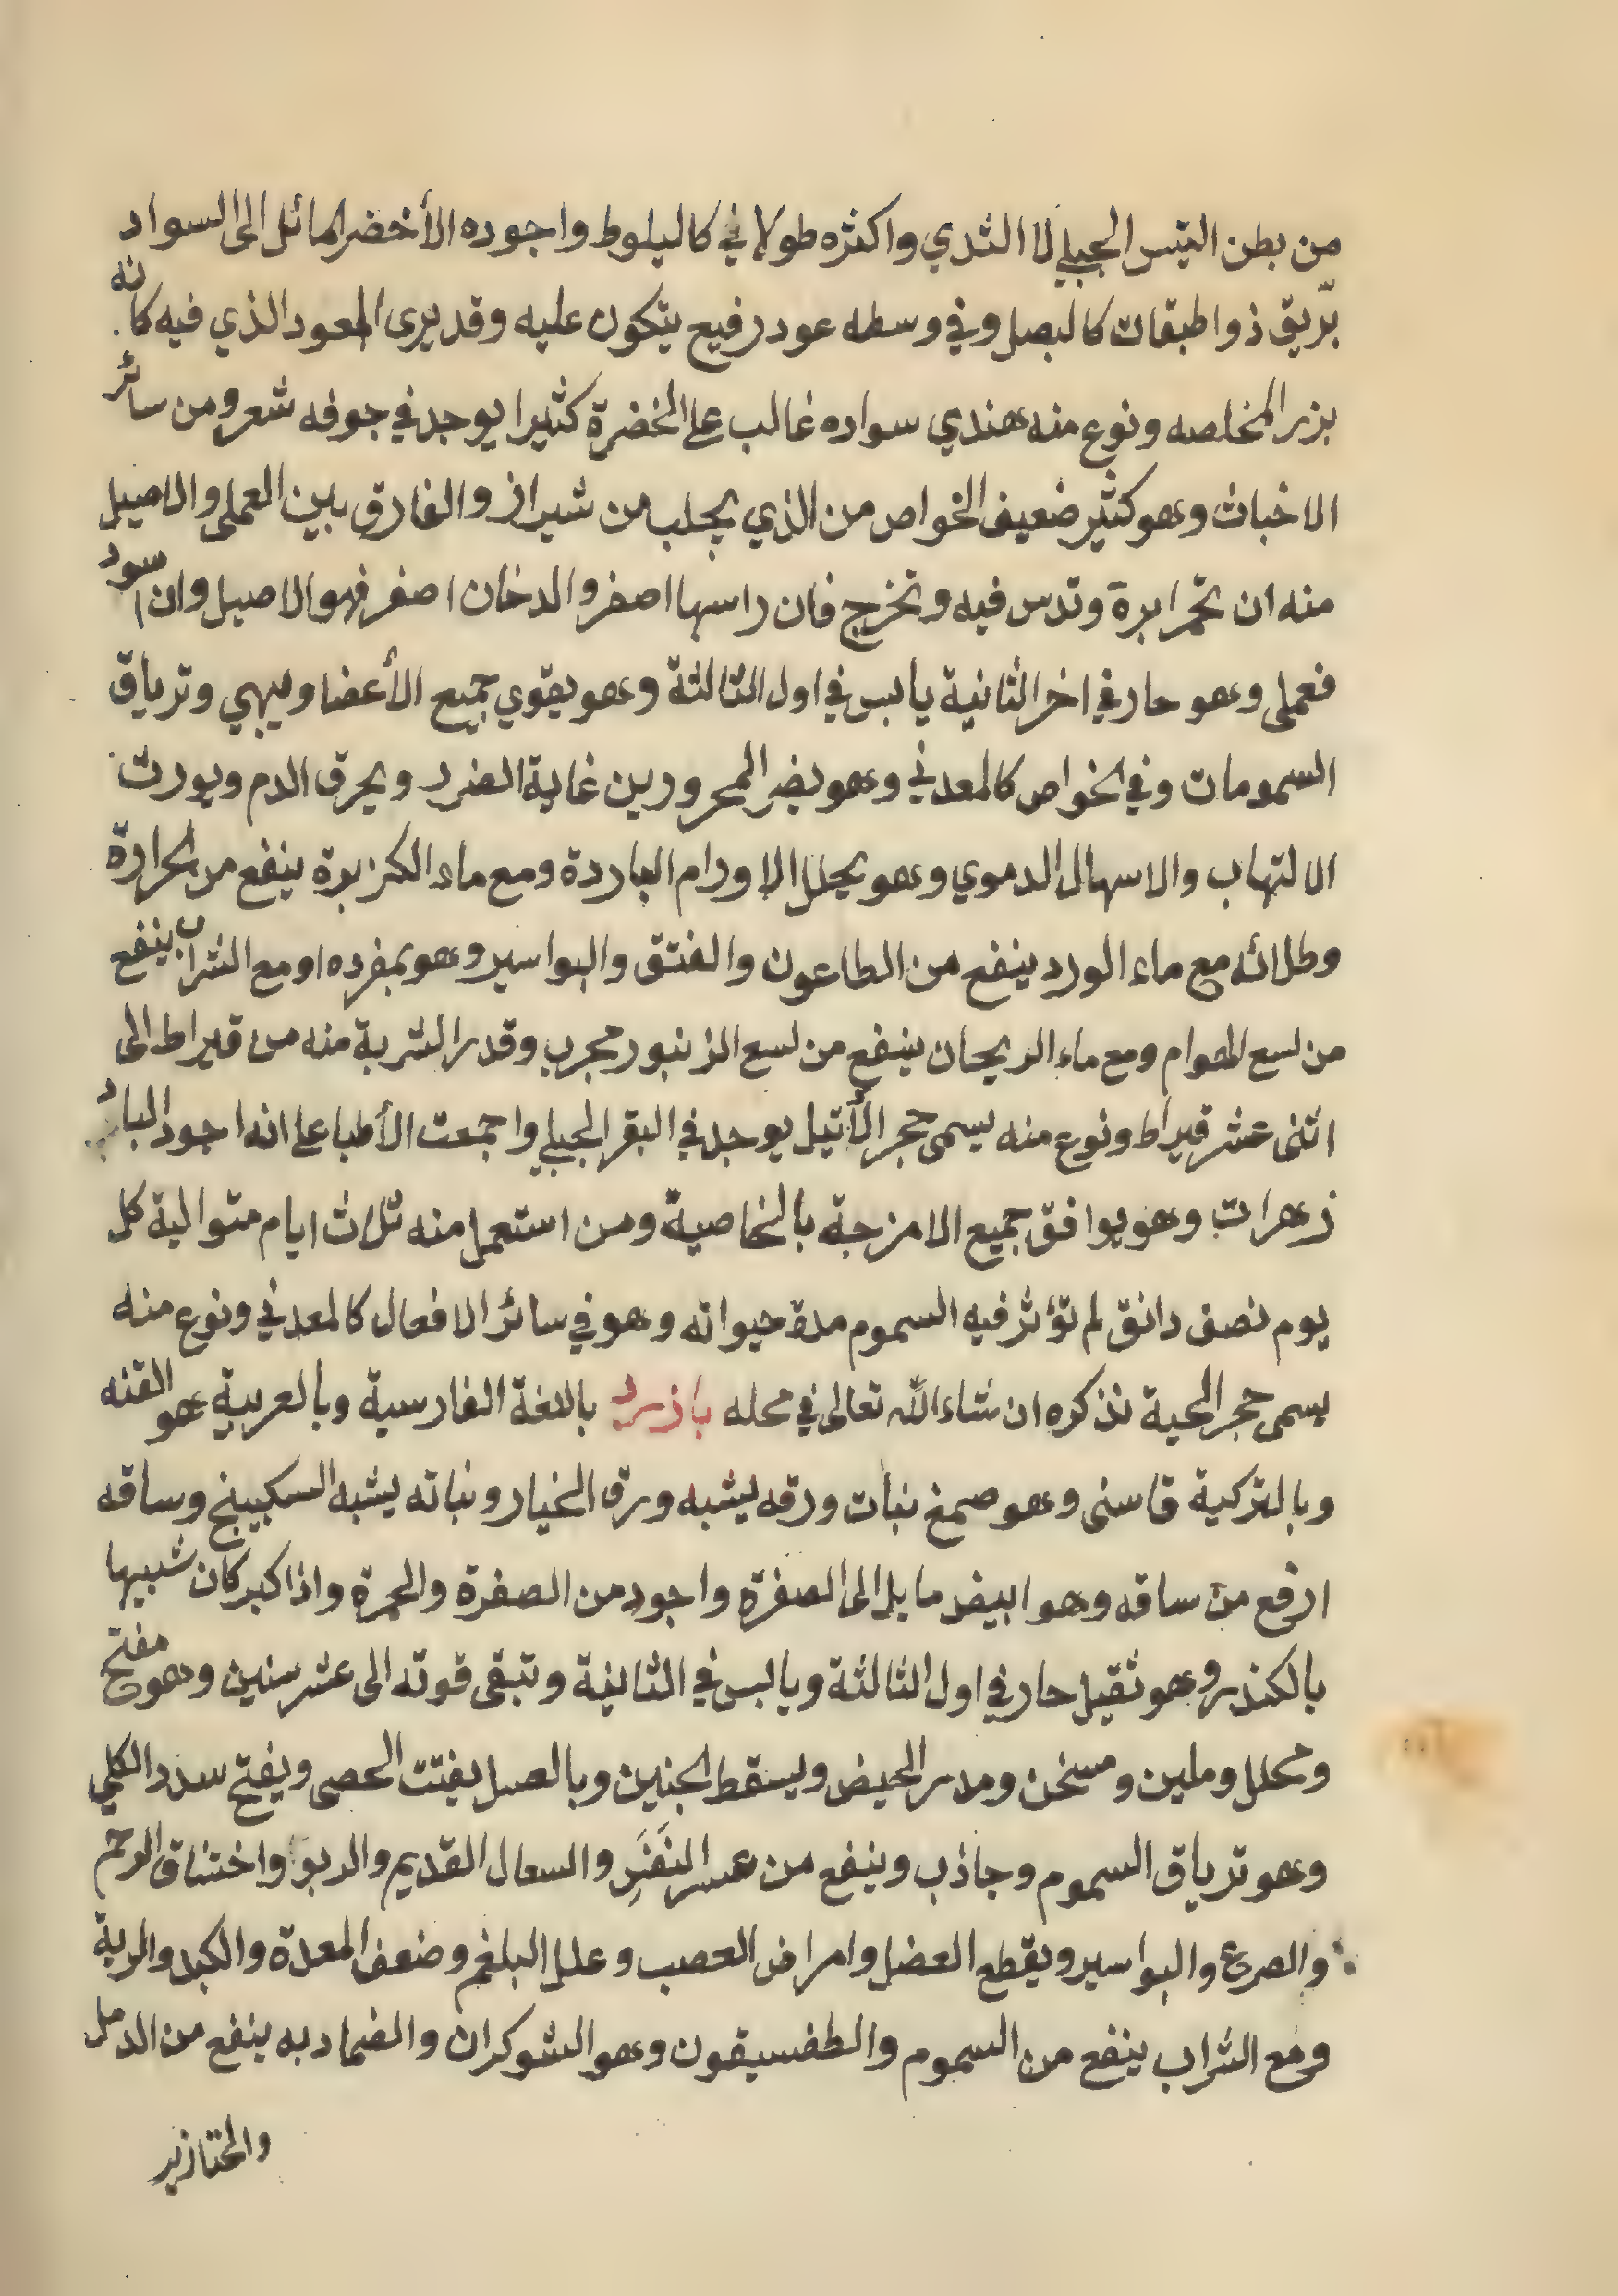 من بطن التيس الجبلي لا الثدي واكثره طولاني كالبلوط واجوده الأخضر المائل الى السواد
برّيق ذوا طبقات كالبصل وفي وسطه عود رفيع يتكون عليه وقد يرى العود الذي فيه كانه
بزر المخلصه ونوع منه هندي سواده غالب على الخضرة كثيرا يوجد في جوفه شعر ومن سائر
الاخباث وهو كثير ضعيف الخواص من الذي يجلب من شيراز والفارق بين العملى والاصيل
منه ان تحمر ابرة وتدس فيه وتخرج فان راسها اصفر والدخان اصفر فهو الاصيل وان اسود
فعملى وهو حار في اخر الثانية يابس في اول الثالثة وهو يقوي جميع الأعضا ويبهي وترياق
السمومات وفي الخواص كالمعدني وهو يضر المحرورين غاية الضرر ويحرق الدم ويورث
الالتهاب والاسهال الدموي وهو يحلل الاورام الباردة ومع ماء الكزبرة ينفع من الحرارة
وطلائه مع ماء الورد ينفع من الطاعون والفتق والبواسير وهو بمفرده او مع الشراب ينفع
من لسع الهوام ومع ماء الريحان ينفع من لسع الزنبور مجرب وقدر الشربة منه من قيراط الى
اثنى عشر قيراط ونوع منه يسمى حجر الأتيل يوجد في البقر الجبلي واجمعت الأطبا على انه اجود الباد
زهرات وهو يوافق جميع الامزجة بالخاصية ومن استعمل منه ثلاث ايام متوالية كل
يوم نصف دانق لم تؤثر فيه السموم مدة حيواته وهو في سائر الافعال كالمعدني ونوع منه
يسمى حجر الحية نذكره ان شاء الله تعالى في محله باذرد باللغة الفارسية وبالعربية هو القنه
وبالتركية قاسنى وهو صمغ نبات ورقه يشبه ورق الخيار ونباته يشبه السكبينج وساقه
ارفع من ساقه وهو ابيض مايل الى الصفرة واجود من الصفرة والحمرة واذا كبر كان شبيها
بالكندر وهو ثقيل حار في اول الثالثة ويابس في الثانية وتبقى قوته الى عشر سنين وهو مفتح
ومحلل وملين ومسخن ومدر الحيض ويسقط الجنين وبالعسل يفتت الحصى ويفتح سدد الكلي
وهو ترياق السموم وجاذب وينفع من عسر النفس والسعال القديم والربو واختناق الرحم
والصرع والبواسير ويقطع العضل وامراض العصب وعلل البلغم وضعف المعدة والكبد والرية
ومع الشراب ينفع من السموم والطفسيقون وهو الشوكران والضماد به ينفع من الدمل
والختازير